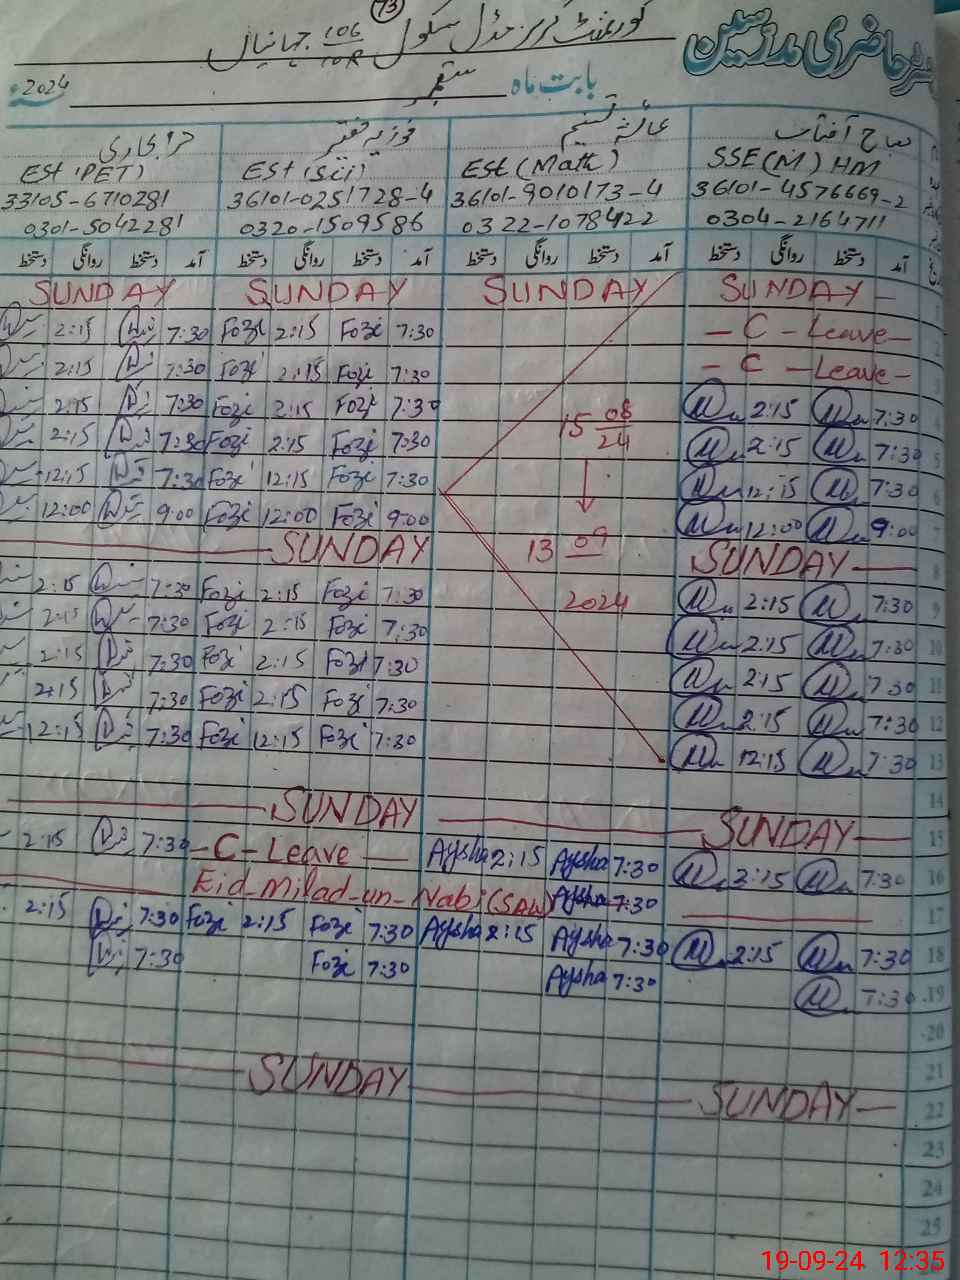 73
گورنمنٹ گرلز مڈل سکول 106/10R جہانیاں
حاضری مدرسین
بابت ماہ ستمبر 2024
صباح آفتاب عائشہ تسنیم فوزیہ
SSE(M) HM Est (Math) Est (Sci) Est (PET)
36101-4576669-2 36101-9010173-4 36101-0251728-4 33105-6710281
0304-2164711 0322-1078422 0320-1509586 0301-5042281
آمد دستخط روانگی دستخط آمد دستخط روانگی دستخط آمد دستخط روانگی دستخط آمد دستخط روانگی دستخط
SUNDAY SUNDAY SUNDAY SUNDAY
2:15 7:30 Fozi 2:15 Fozi 7:30 - C - Leave - 2
2:15 7:30 Fozi 2:15 Fozi 7:30 - C - Leave -
2:15 7:30 Fozi 2:15 Fozi 7:30 15 08/24 2:15 7:30 4
2:15 7:30 Fozi 2:15 Fozi 7:30 2:15 7:30 5
12:15 7:30 Fozi 12:15 Fozi 7:30 12:15 7:30 6
12:00 9:00 Fozi 12:00 Fozi 9:00 12:00 9:00 7
SUNDAY 13 09 SUNDAY 8
2:15 7:30 Fozi 2:15 Fozi 7:30 2024 2:15 7:30 9
2:15 7:30 Fozi 2:15 Fozi 7:30 2:15 7:30 10
2:15 7:30 Fozi 2:15 Fozi 7:30 2:15 7:30 11
2:15 7:30 Fozi 2:15 Fozi 7:30 2:15 7:30 12
12:15 7:30 Fozi 12:15 Fozi 7:30 12:15 7:30 13
14
SUNDAY SUNDAY 15
2:15 7:30 - C - Leave Aysha 2:15 Aysha 7:30 2:15 7:30 16
Eid-Milad-un-Nabi (SAW) Aysha 7:30 17
2:15 7:30 Fozi 2:15 Fozi 7:30 Aysha 2:15 Aysha 7:30 2:15 7:30 18
7:30 Fozi 7:30 Aysha 7:30 7:30 19
20
21
SUNDAY SUNDAY 22
23
24
25
19-09-24 12:35